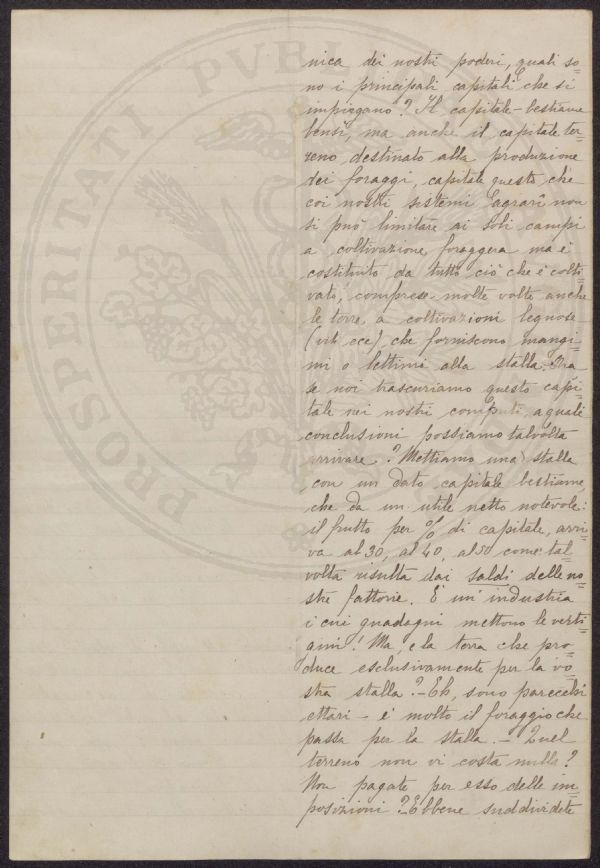 PROSPERITATI PVBL
nica dei nostri poderi, quali so=
no i principali capitali che si
impiegano? Il capitale-bestiame
bensì, ma anche il capitale ter=
reno destinato alla produzione
dei foraggi, capitale questo, che
coi nostri sistemi agrari non
si può limitare ai soli campi
a coltivazione foraggera ma è
costituito da tutto ciò che è colti=
vato, comprese molte volte anche
le terre a coltivazioni legnose
(viti ecc) che forniscono mangi=
mi o lettimi alla stalla. Ma
se noi trascuriamo questo capi=
tale nei nostri computi, a quali
conclusioni possiamo talvolta
arrivare? Mettiamo una stalla
con un dato capitale bestiame,
che da un utile netto notevole:
il frutto per % di capitale, arri=
va al 30, al 40, al 50 come tal=
volta risulta dai saldi delle no=
stre fattorie. È un'industria
i cui guadagni mettono le verti=
gini! Ma, e la terra che pro=
duce esclusivamente per la vo=
stra stalla? - Eh, sono parecchi
ettari - è molto il foraggio che
passa per la stalla. - Quel
terreno non vi costa nulla?
Non pagate per esso delle im=
posizioni? Ebbene suddividete